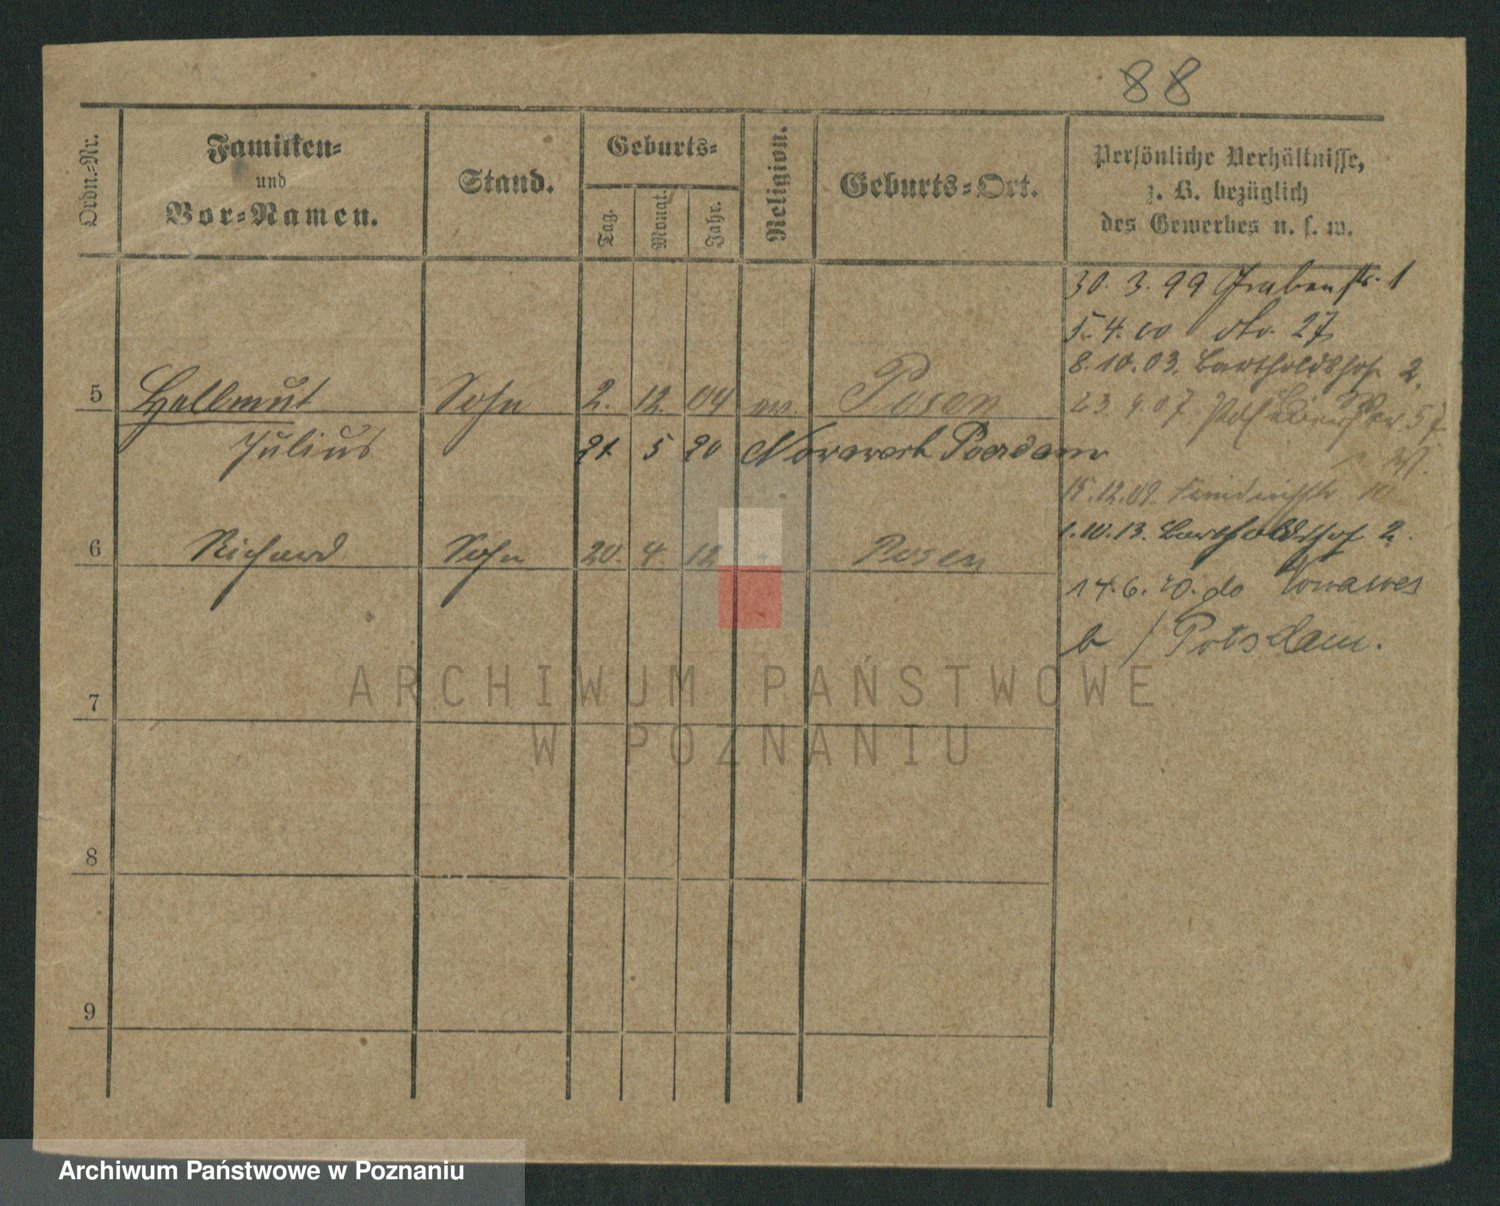 88
Ordn.-Nr.
Familien-
und
Vor-Namen.
Stand.
Geburts-
Tag.
Monat.
Jahr.
Religion.
Geburts-Ort.
Persönliche Verhältnisse,
z. B. bezüglich
des Gewerbes u. s. w.
30. 3. 99 Grabenstr. 1
5. 4. 00 do. 27
8. 10. 03. Bartholdshof 2.
5 Hellmut Sohn 2. 12. 04 ev. Posen
23. 9. 07. 57
Julius 21 5 20 Nowawes Potsdam
W.
15. 12. 09. 10
6 Richard Sohn 20. 4. 12 " Posen
1. 10. 13. Bartholdshof 2.
14. 6. 20. do Nowawes
b / Potsdam.
7
8
9
ARCHIWUM PAŃSTWOWE
W POZNANIU
Archiwum Państwowe w Poznaniu